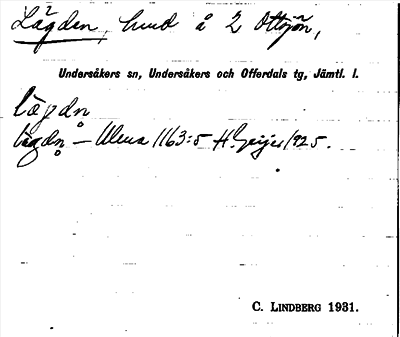 Lägden, hund å 2 Ottsjön,
Undersåkers sn, Undersåkers och Offerdals tg, Jämtl. l.
läɡdn̥
lägdn̥ — Ulma 1163:5 H. Geijer 1925.
C. LINDBERG 1931.